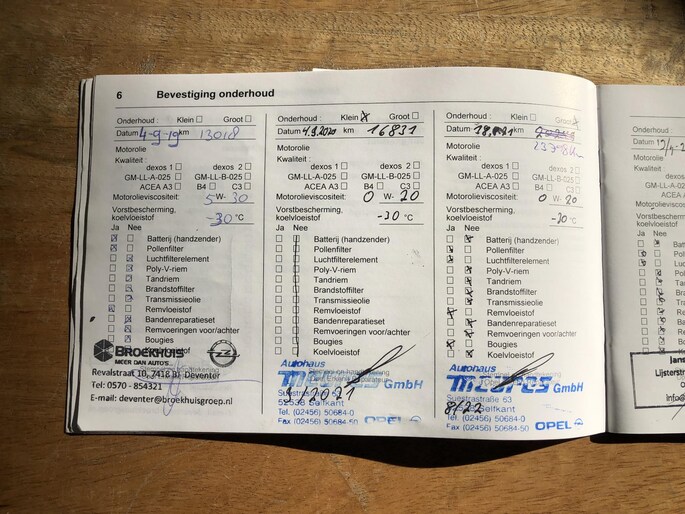 6 Bevestiging onderhoud
Onderhoud : Klein Groot
Datum 4-9-19 km 13018
Motorolie
Kwaliteit :
dexos 1 dexos 2
GM-LL-A-025 GM-LL-B-025
ACEA A3 B4 C3
Motorolieviscositeit: 5 W- 30
Vorstbescherming,
koelvloeistof -30 °C
Ja Nee
Batterij (handzender)
Pollenfilter
Luchtfilterelement
Poly-V-riem
Tandriem
Brandstoffilter
Transmissieolie
Remvloeistof
Bandenreparatieset
Remvoeringen voor/achter
Bougies
Koelvloeistof
BROEKHUIS
MEER DAN AUTO'S...
Revalstraat 10, 7418 BJ Deventer
Tel: 0570 - 854321
E-mail: deventer@broekhuisgroep.nl
Onderhoud : Klein Groot
Datum 4.9.2020 km 16831
Motorolie
Kwaliteit :
dexos 1 dexos 2
GM-LL-A-025 GM-LL-B-025
ACEA A3 B4 C3
Motorolieviscositeit: 0 W- 20
Vorstbescherming,
koelvloeistof -30 °C
Ja Nee
Batterij (handzender)
Pollenfilter
Luchtfilterelement
Poly-V-riem
Tandriem
Brandstoffilter
Transmissieolie
Remvloeistof
Bandenreparatieset
Remvoeringen voor/achter
Bougies
Koelvloeistof
Autohaus
GmbH
9/2021
52538 Selfkant
Tel. (02456) 50684-0
Fax (02456) 50684-50 OPEL
Onderhoud : Klein Groot
Datum km
Motorolie
Kwaliteit :
dexos 1 dexos 2
GM-LL-A-025 GM-LL-B-025
ACEA A3 B4 C3
Motorolieviscositeit: 0 W- 20
Vorstbescherming,
koelvloeistof -30 °C
Ja Nee
Batterij (handzender)
Pollenfilter
Luchtfilterelement
Poly-V-riem
Tandriem
Brandstoffilter
Transmissieolie
Remvloeistof
Bandenreparatieset
Remvoeringen voor/achter
Bougies
Koelvloeistof
Autohaus
GmbH
Suestrastraße 63
8/22 Selfkant
Tel. (02456) 50684-0
Fax (02456) 50684-50 OPEL
Onderhoud :
Datum
Motorolie
Kwaliteit :
GM-LL-A-025
ACEA A3
Motorolieviscositeit:
Vorstbescherming,
koelvloeistof
Ja Nee